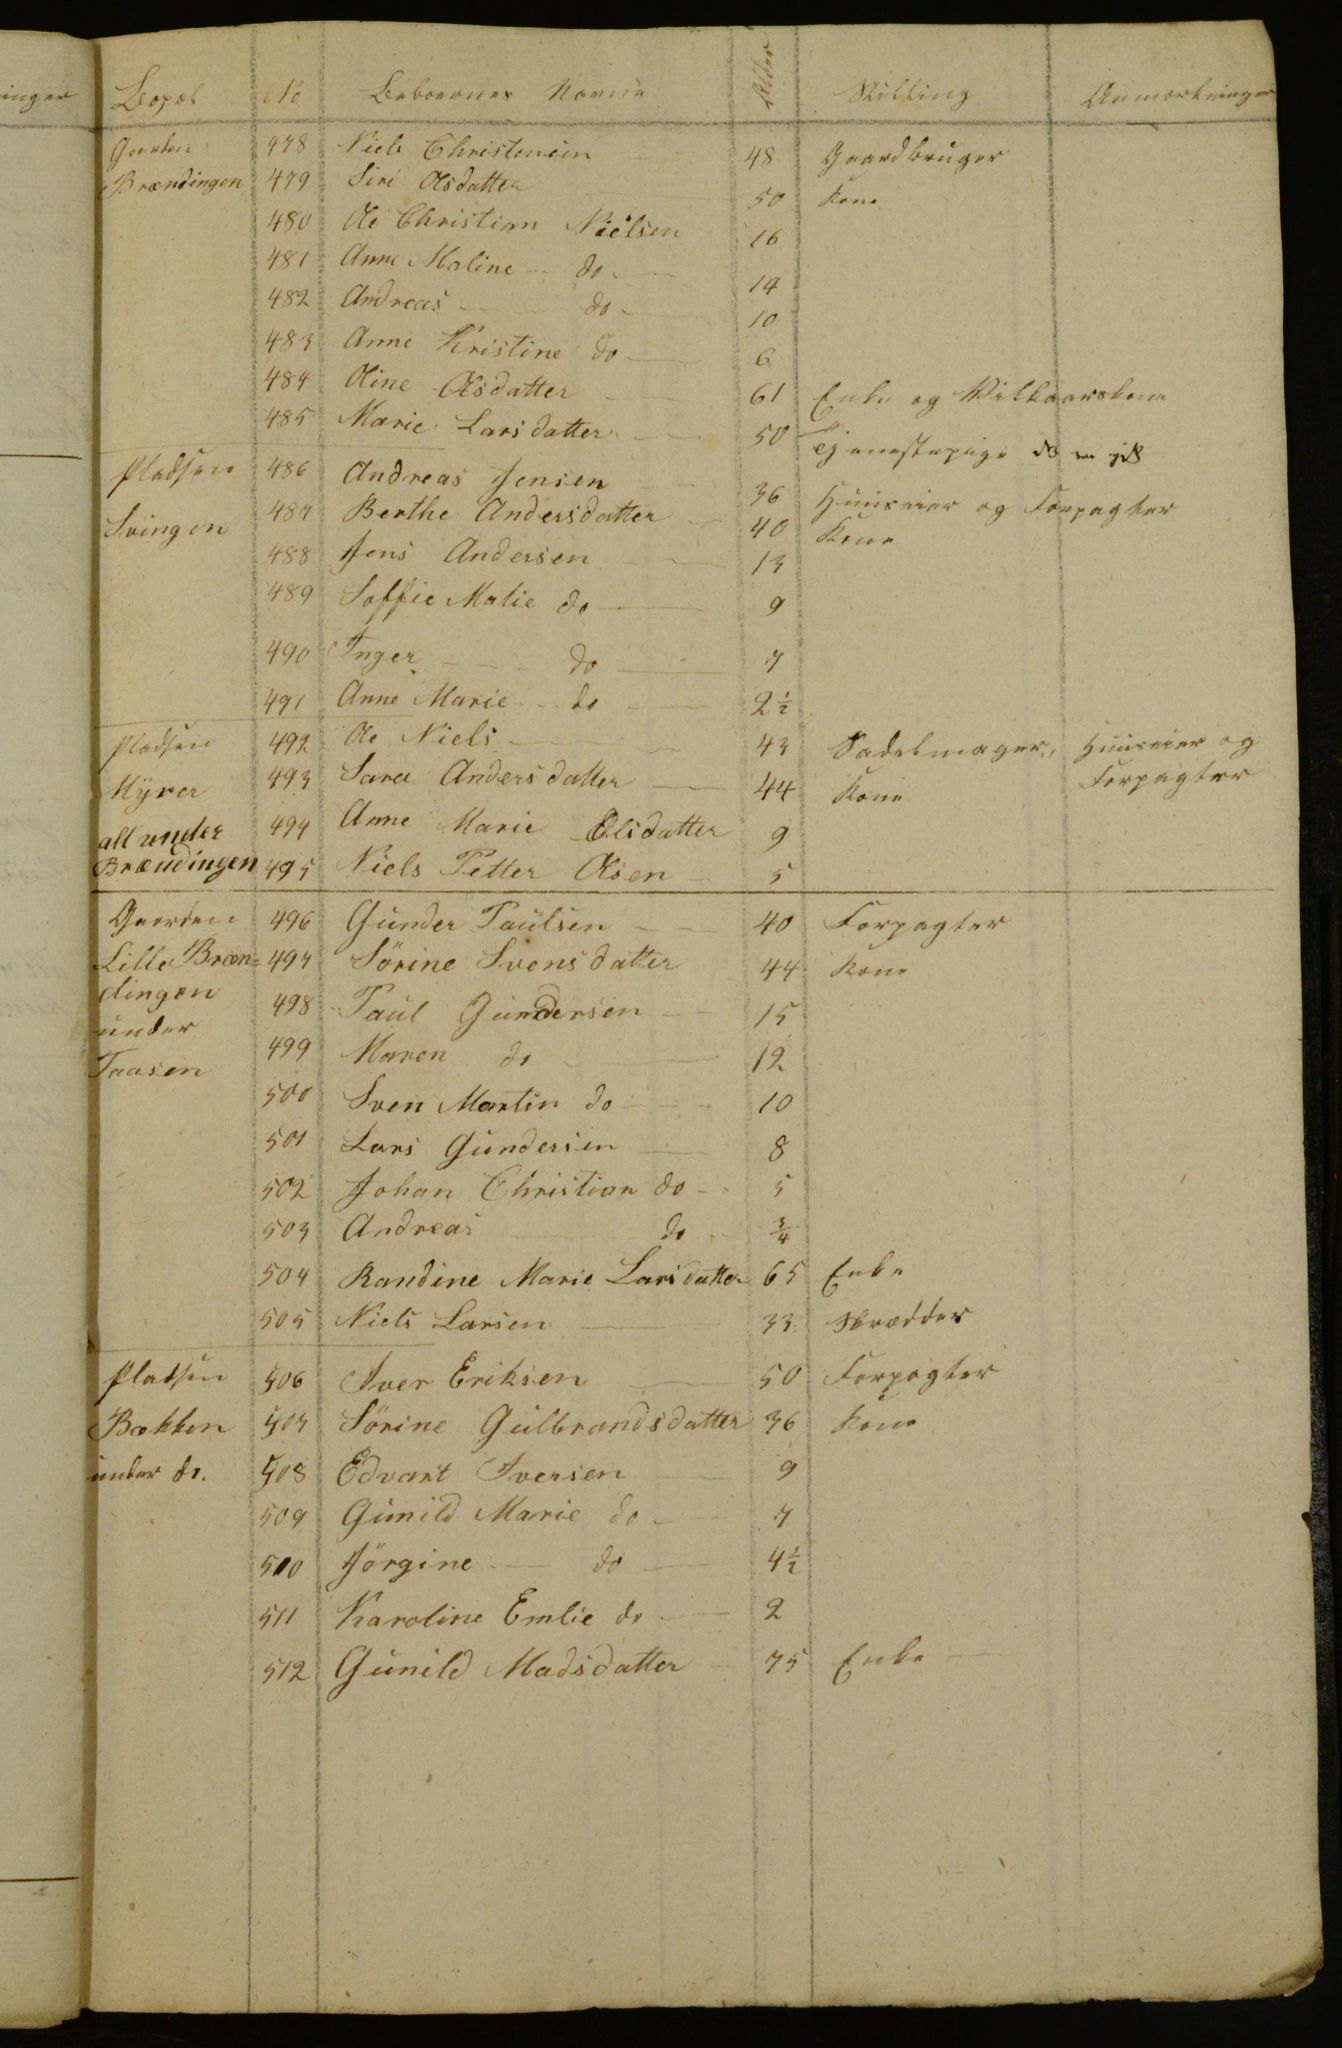 inger
Bopæl No Beboernes Navne Alder Stilling Anmærkninger
Gaarden 478 Niels Christensen 48 Gaardbruger
Brændingen 479 Siri Olsdatter 50 Kone
480 Ole Christian Nielsen 16
481 Anne Maline do 14
482 Andreas do 10
483 Anne Kristine do 6
484 Oline Olsdatter 61 Enke og Vilkaarskone
485 Marie Larsdatter 50 Tjenestepige
Pladsen 486 Andreas Jensen 36 Huuseier og Forpagter
Svingen 487 Berthe Andersdatter 40 Kone
488 Jens Andersen 13
489 Soffie Malie do 9
490 Inger do 7
491 Anne Marie do 2½
Pladsen 492 Ole Niels 43 Sadelmager, Huuseier og
Myrer 493 Sara Andersdatter 44 Kone Forpagter
alt under 494 Anne Marie Olsdatter 9
Brændingen 495 Niels Petter Olsen 5
Gaarden 496 Gunder Paulsen 40 Forpagter
Lille Bræn= 497 Sörine Svensdatter 44 Kone
dingen 498 Paul Gundersen 15
under
499 Maren do 12
Taasen
500 Sven Martin do 10
501 Lars Gundersen 8
502 Johan Christian do 5
503 Andreas do ¾
504 Randine Marie Larsdatter 65 Enke
505 Niels Larsen 33 Skrædder
Pladsen 506 Iver Eriksen 50 Forpagter
Bækken 507 Sörine Gulbrandsdatter 36 Kone
under do. 508 Edvart Iversen 9
509 Gunild Marie do 7
510 Jörgine do 4½
511 Karoline Emlie do 2
512 Gunild Madsdatter 75 Enke